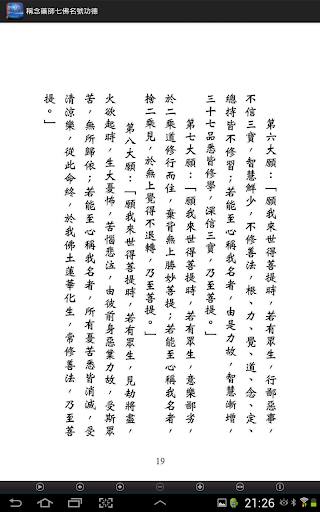 稱念藥師七佛名號功德
第六大願：「願我來世得菩提時，若有眾生，行鄙惡事，
不信三寶，智慧鮮少，不修善法，根、力、覺、道、念、定、
總持皆不修習；若能至心稱我名者，由是力故，智慧漸增，
三十七品悉皆修學，深信三寶，乃至菩提。」
第七大願：「願我來世得菩提時，若有眾生，意樂鄙劣，
於二乘道修行而住，棄背無上勝妙菩提；若能至心稱我名者，
捨二乘見，於無上覺得不退轉，乃至菩提。」
第八大願：「願我來世得菩提時，若有眾生，見劫將盡，
火欲起時，生大憂怖，苦惱悲泣，由彼前身惡業力故，受斯眾
苦，無所歸依；若能至心稱我名者，所有憂苦悉皆消滅，受
清涼樂，從此命終，於我佛土蓮華化生，常修善法，乃至菩
提。」
19
21:26